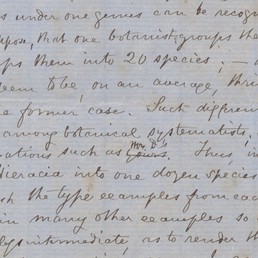 s under one genus can be recogn
pose, that one botanist groups the
ps them into 20 species; —
eem to be, on an average, thri
e former case. Such differen
among botanical systematists,
ations such as yours. Mr. D's Thus, in
Hieracia into one dozen species
h the type examples from eac
in many other examples so
ly intermediate, as to render th